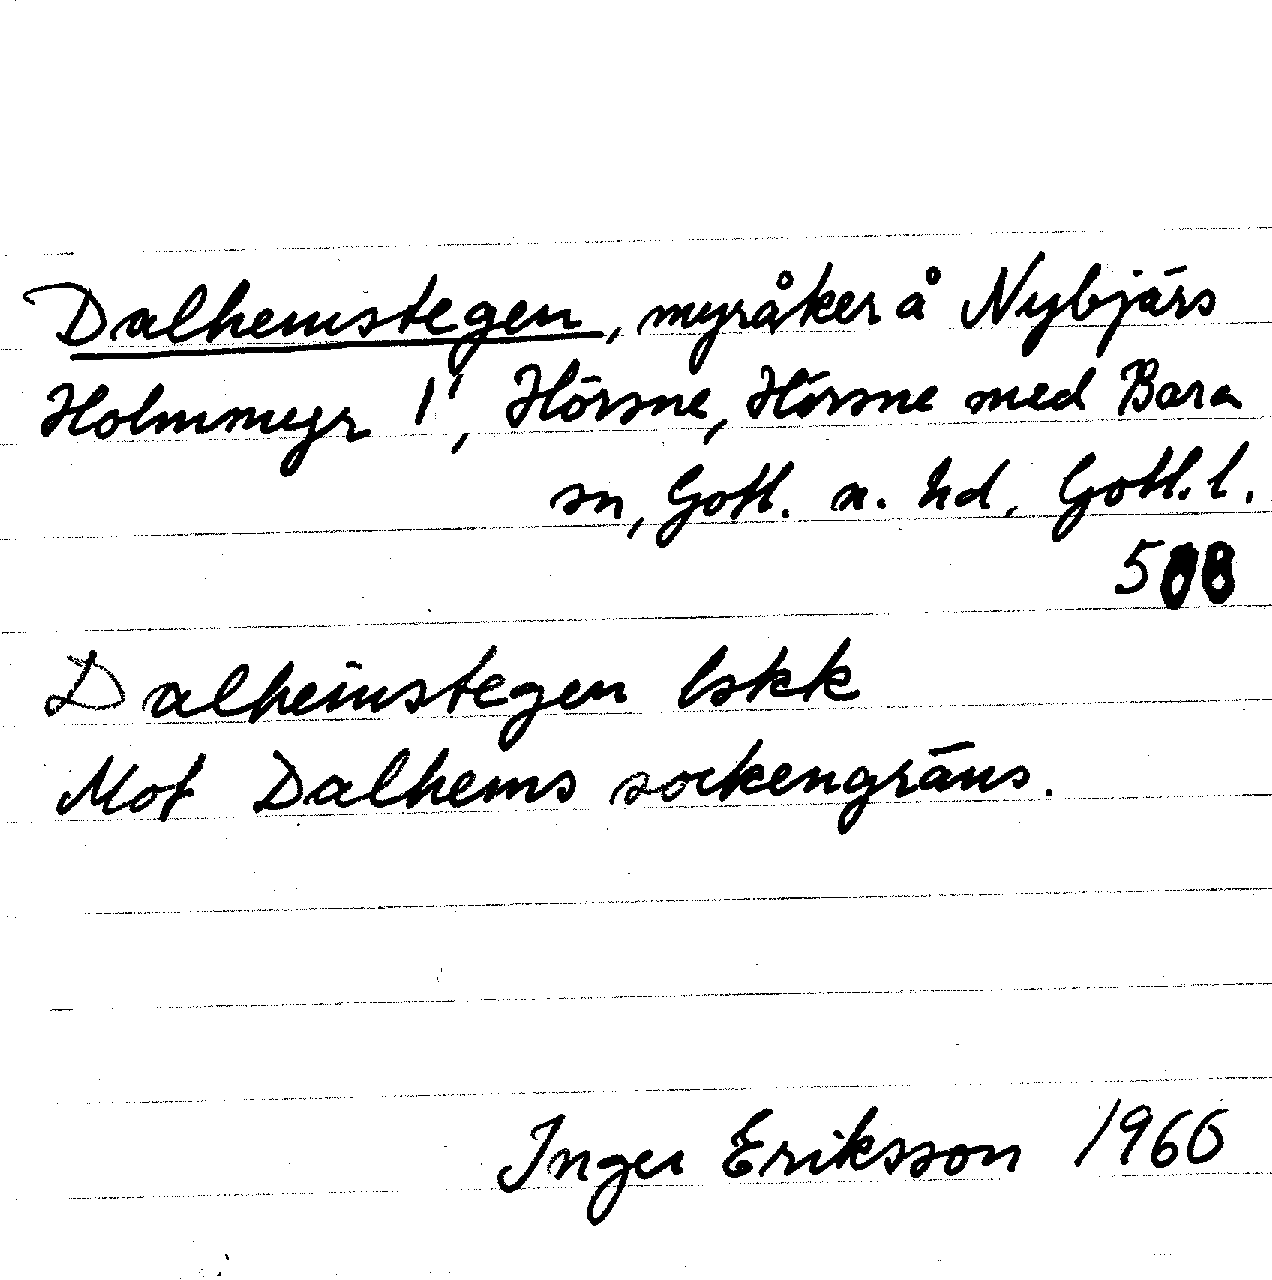 Dalhemstegen, myråker å Nybjärs
Holmmyr 1¹, Hörsne, Hörsne med Bara
sn, Gotl. n. hd, Gotl. l.
Dalhemstegen lskk
Mot Dalhems sockengräns.
Inger Eriksson 1966